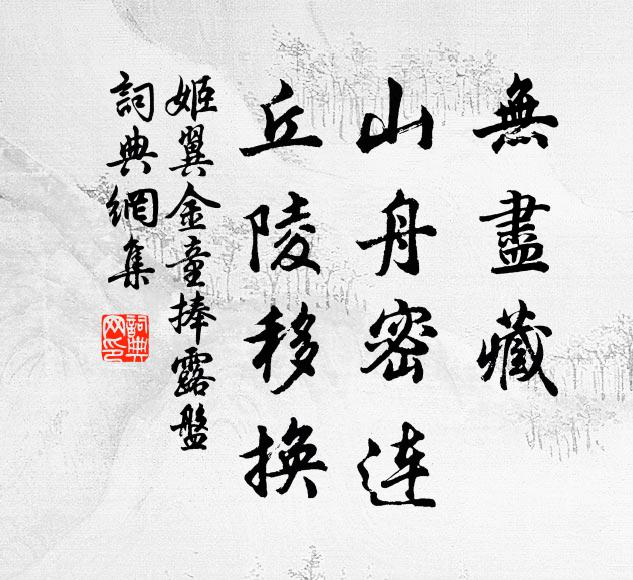 無盡藏
山舟密连
丘陵移換
姬翼金童捧露盤
詞典網集
詞典网印